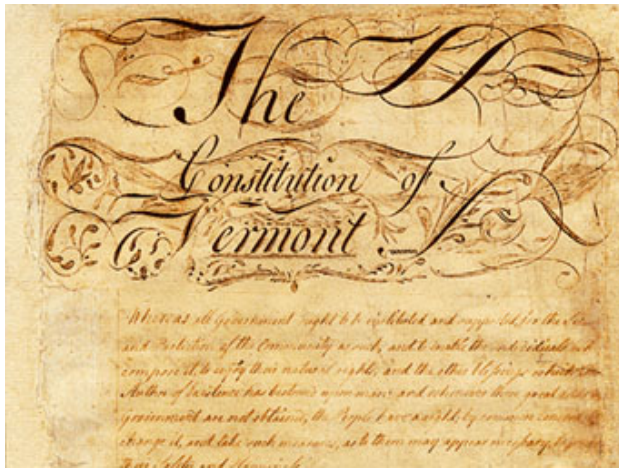 The
Constitution of
Vermont
Whereas all Government ought to be instituted and supported for the
and Protection of the Community as such, and to enable the individuals who
compose it, to enjoy their natural rights, and the other blessings which the
Author of Existence has bestowed upon man; and whenever those great ends of
Government are not obtained, the People have a right, by common consent to
change it, and take such measures, as to them may appear necessary, to